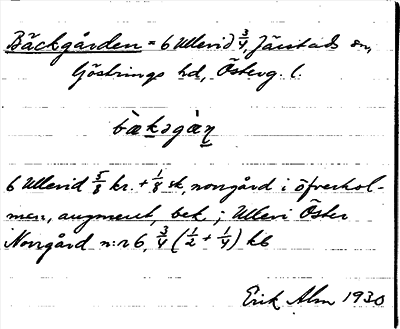 Bäckgården = 6 Ullevid 3/4, Järstads sn,
Göstrings hd, Österg. l.
bækɔgàn
6 Ullevid 5/8 kr. + 1/8 sk, norrgård i öfverhol-
men, augment, bek.; Ullevi Öster
Norrgård n:r 6, 3/4 (1/2 + 1/4) hb
Erik Alm 1930